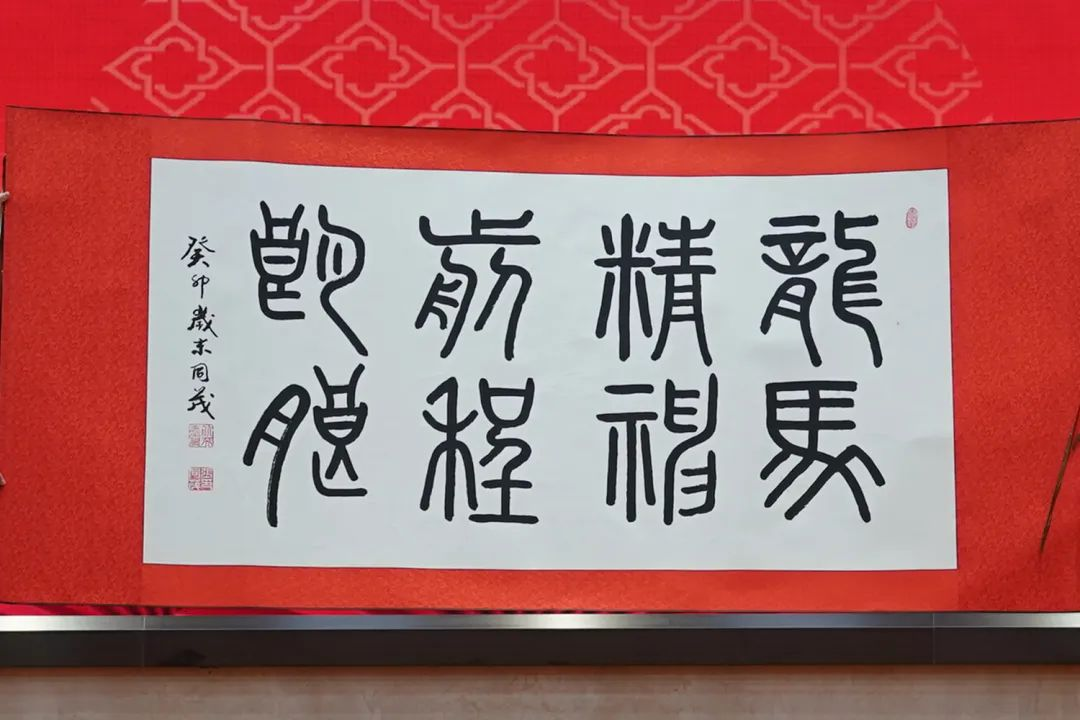 龍馬
精神
前程
朗朗
癸卯歲末同茂